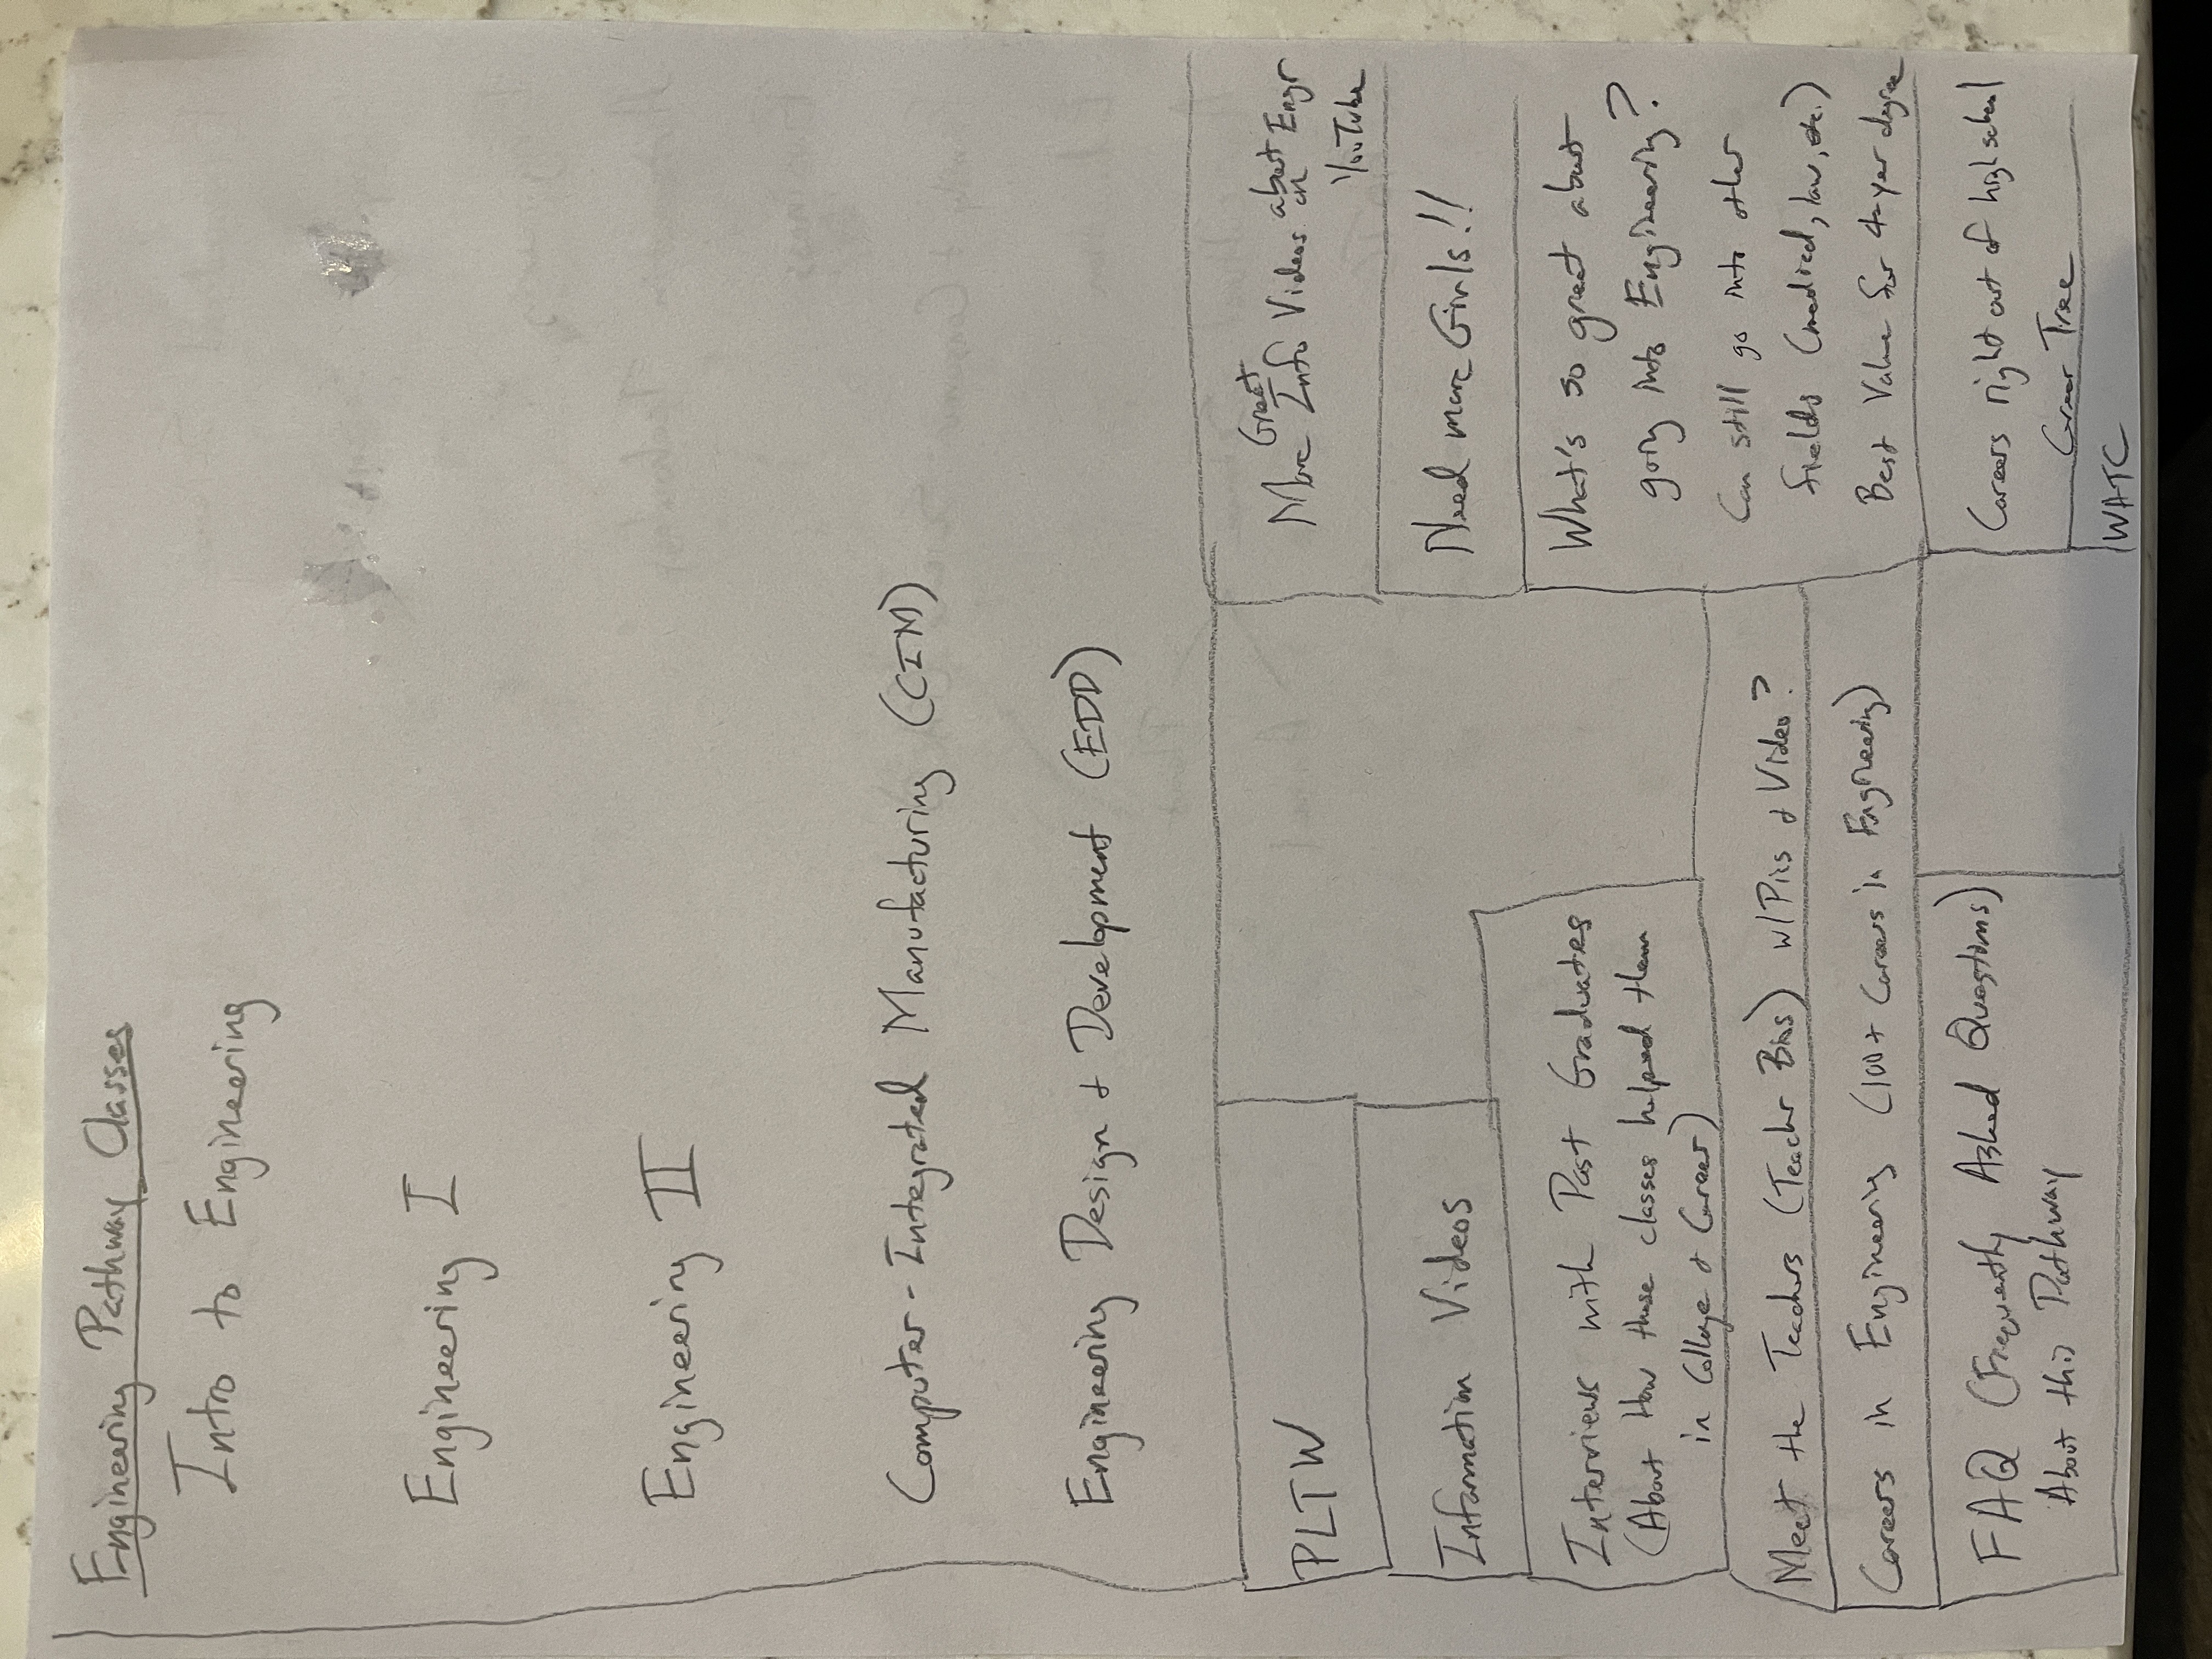 Engineering Pathway Classes
Intro to Engineering
Engineering I
Engineering II
Computer-Integrated Manufacturing (CIM)
Engineering Design & Development (EDD)
PLTW
Information Videos
Interviews with Past Graduates
(About How these classes helped them
in College & Career)
Meet the Teachers (Teacher Bios) w/Pics & Video?
Careers in Engineering (100+ Careers in Engineering)
FAQ (Frequently Asked Questions)
About this Pathway
Great
More Info Videos about on Engr
YouTube
Need more Girls!!
What's so great about
going into Engineering?
Can still go into other
fields (medical, law, etc.)
Best Value for 4-year degree
Careers right out of high school
Career Tree
WATC